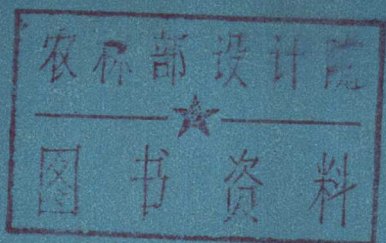 农林部设计院
图书资料